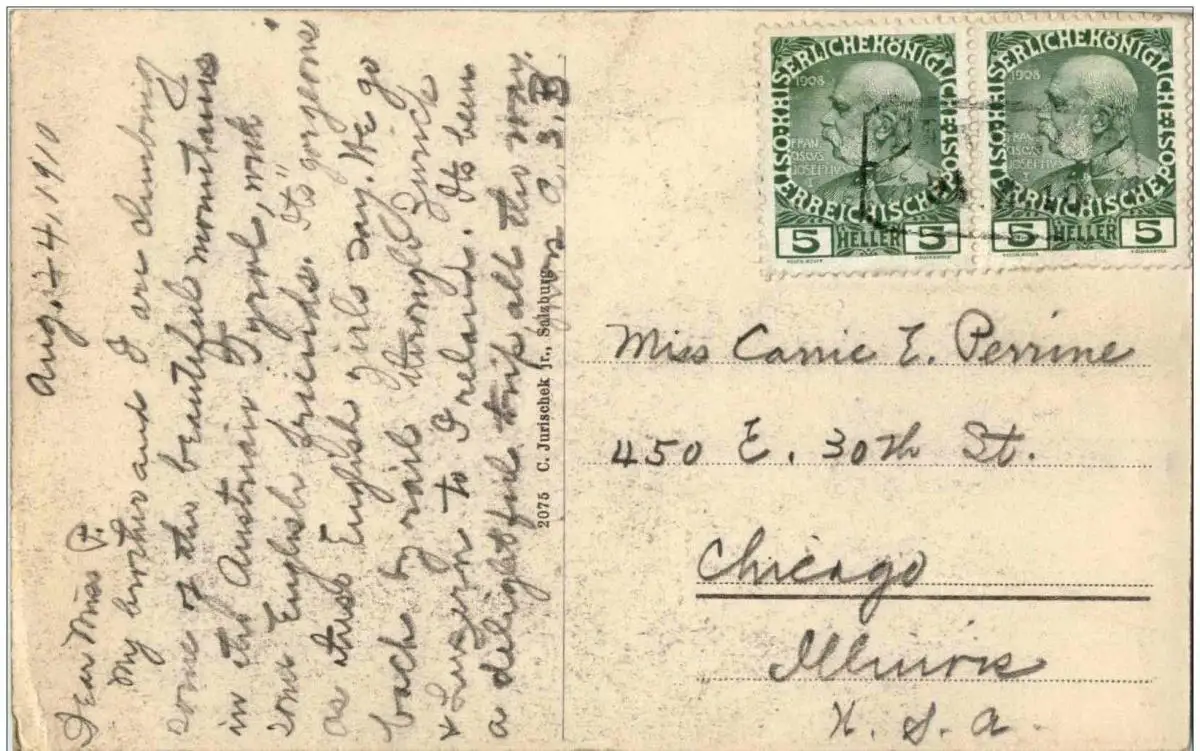 Aug. 4, 1910
Dear Miss P.
My brother and I are climbing
some of the beautiful mountains
in the Austrian Tyrol, with
some English friends. "Its gorgeous"
as these English girls say. We go
back by rail through Zurich
& Luzern to Ireland. Its been
a delightful trip all the way.
C. S. B.
2075 C. Jurischek Jr., Salzburg
KAISERLICHE KÖNIGLICHE ÖSTERREICHISCHE POST
1908
FRAN
CISCVS
JOSEPHVS
I
5 HELLER 5
KAISERLICHE KÖNIGLICHE ÖSTERREICHISCHE POST
1908
FRAN
CISCVS
JOSEPHVS
I
5 HELLER 5
Miss Carrie E. Perrine
450 E. 30th St.
Chicago
Illinois
U. S. A